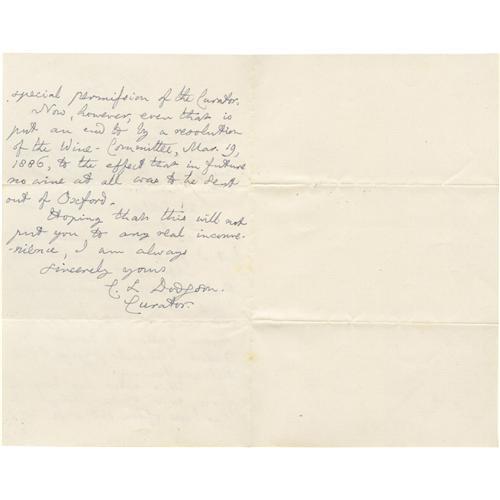 special permission of the Curator.
Now, however, even that is
put an end to by a resolution
of the Wine-Committee, Mar. 19,
1886, to the effect that in future
no wine at all was to be sent
out of Oxford.
Hoping that this will not
put you to any real inconve-
-nience, I am always
sincerely yours
C. L. Dodgson.
Curator.